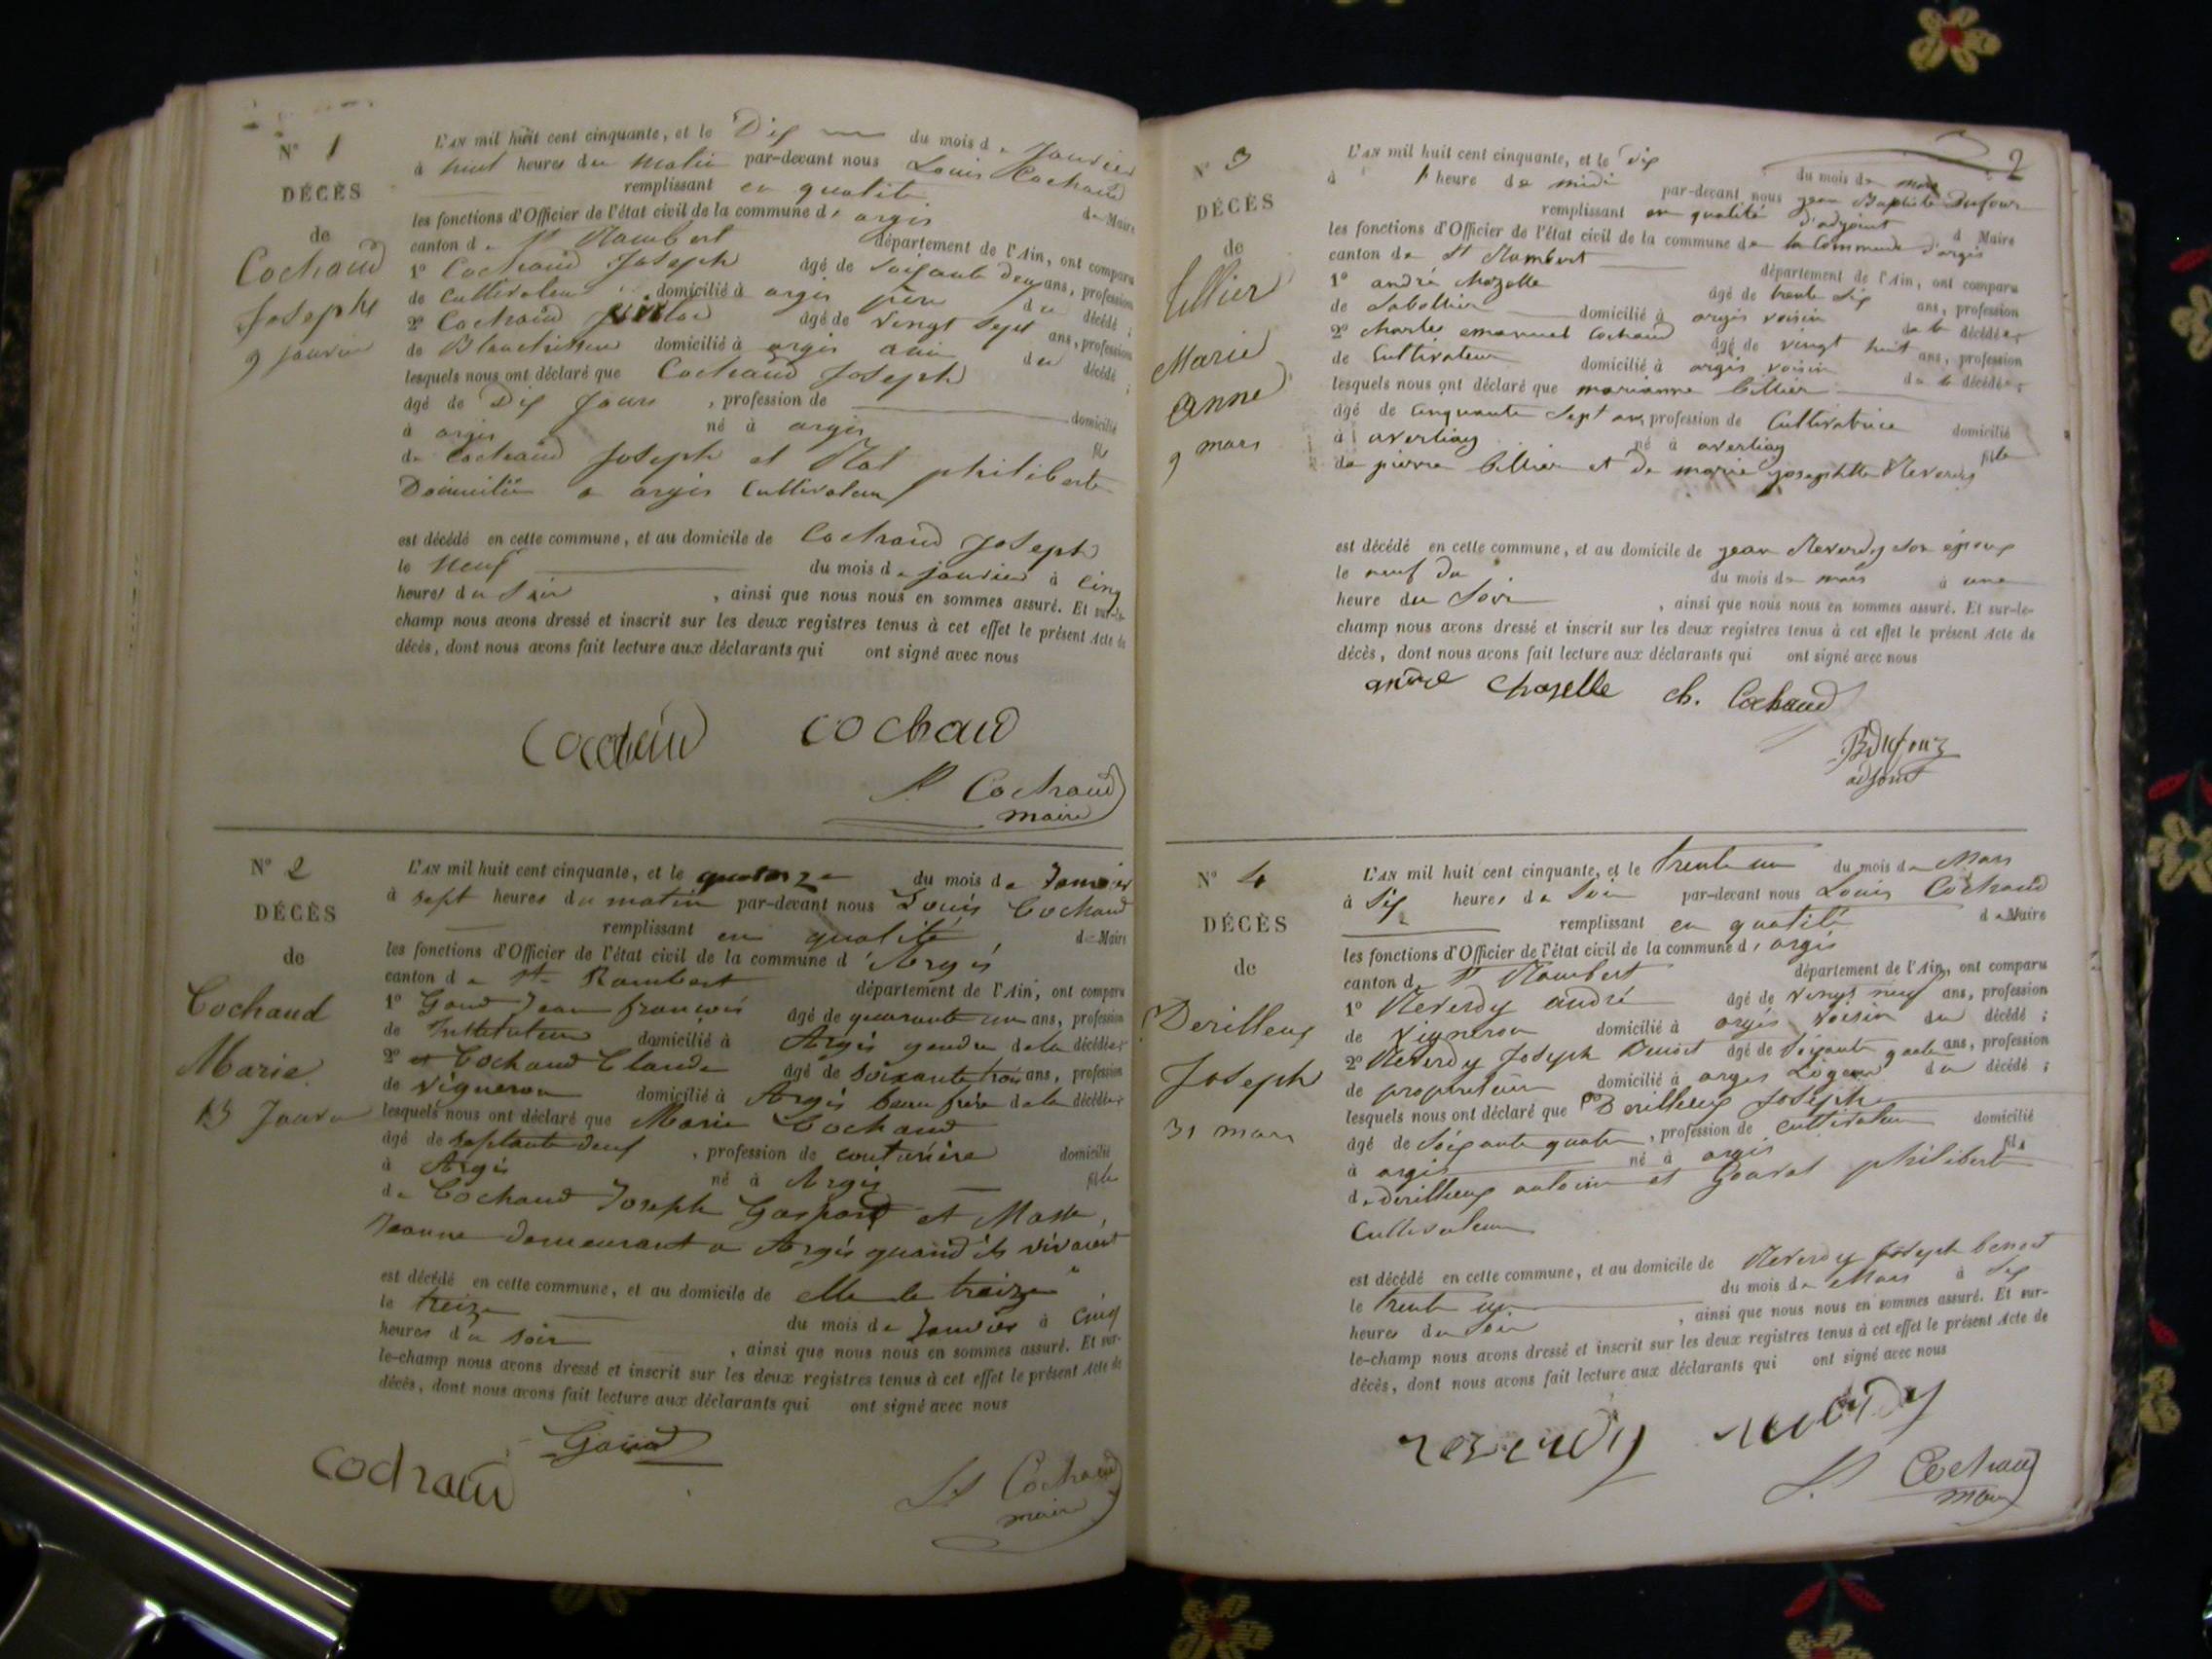 N° 1
DÉCÈS
de
Cochaud
Joseph
9 janvier
L'AN mil huit cent cinquante, et le Dix du mois de Janvier
à huit heures du matin par-devant nous Louis Cochaud
remplissant en qualité de Maire
les fonctions d'Officier de l'état civil de la commune d'argis
canton de St Rambert département de l'Ain, ont comparu
1° Cochaud Joseph âgé de soixante deux ans, profession
de Cultivateur domicilié à argis père du décédé ;
2° Cochaud âgé de vingt sept ans, profession
de domicilié à argis ami du décédé ;
lesquels nous ont déclaré que Cochaud Joseph
âgé de Dix Jours , profession de domicilié
à argis né à argis fils
de Cochaud Joseph et philiberte
Domicilié a argis Cultivateur
est décédé en cette commune, et au domicile de Cochaud Joseph
le neuf du mois de janvier à cinq
heures du soir , ainsi que nous nous en sommes assuré. Et sur-le-
champ nous avons dressé et inscrit sur les deux registres tenus à cet effet le présent Acte de
décès, dont nous avons fait lecture aux déclarants qui ont signé avec nous
Cochaud cochaud
Cochaud
maire
N° 2
DÉCÈS
de
Cochaud
Marie
13 Janvier
L'AN mil huit cent cinquante, et le quatorze du mois de Janvier
à sept heures du matin par-devant nous Louis Cochaud
remplissant en qualité de Maire
les fonctions d'Officier de l'état civil de la commune d'Argis
canton de St Rambert département de l'Ain, ont comparu
1° Goud Jean françois âgé de quarante un ans, profession
de Instituteur domicilié à Argis gendre de la décédée ;
2° Cochaud Claude âgé de soixante trois ans, profession
de vigneron domicilié à Argis beau frère de la décédée ;
lesquels nous ont déclaré que Marie Cochaud
âgé de septante deux , profession de couturière domicilié
à Argis né à Argis fille
de Cochaud Joseph Gaspard et
Jeanne demeurant a Argis quand ils vivaient
est décédé en cette commune, et au domicile de elle le treize
le treize du mois de Janvier à cinq
heures du soir , ainsi que nous nous en sommes assuré. Et sur-
le-champ nous avons dressé et inscrit sur les deux registres tenus à cet effet le présent Acte de
décès, dont nous avons fait lecture aux déclarants qui ont signé avec nous
cochaud
Cochaud
maire
2
N° 3
DÉCÈS
de
tillier
Marie
Anne
9 mars
L'AN mil huit cent cinquante, et le dix du mois de mars
à 1 heure de midi par-devant nous jean Baptiste Dufour
remplissant en qualité d'adjoint d Maire
les fonctions d'Officier de l'état civil de la commune de la Commune d'argis
canton de St Rambert département de l'Ain, ont comparu
1° andré Chazelle âgé de trente six ans, profession
de Sabottier domicilié à argis voisin de la décédée ;
2° Charles emanuel Cochaud âgé de vingt huit ans, profession
de Cultivateur domicilié à argis voisin de la décédée ;
lesquels nous ont déclaré que marianne tillier
âgé de cinquante sept ans, profession de Cultivatrice domicilié
à né à fille
de pierre tillier et de marie josephtte Reverdy
est décédé en cette commune, et au domicile de jean Reverdy son époux
le neuf du du mois de mars à une
heure du soir , ainsi que nous nous en sommes assuré. Et sur-le-
champ nous avons dressé et inscrit sur les deux registres tenus à cet effet le présent Acte de
décès, dont nous avons fait lecture aux déclarants qui ont signé avec nous
andré chazelle ch. Cochaud
Dufour
adjoint
N° 4
DÉCÈS
de
Derilleux
Joseph
31 mars
L'AN mil huit cent cinquante, et le trente un du mois de Mars
à Six heures de Soir par-devant nous Louis Cochaud
remplissant en qualité de Maire
les fonctions d'Officier de l'état civil de la commune d'argis
canton de St Rambert département de l'Ain, ont comparu
1° Reverdy andré âgé de vingt neuf ans, profession
de vigneron domicilié à argis voisin du décédé ;
2° Reverdy Joseph Benoit âgé de Soixante quatre ans, profession
de proprietaire domicilié à argis Logeur du décédé ;
lesquels nous ont déclaré que Derilleux Joseph
âgé de Soixante quatre , profession de cultivateur domicilié
à argis né à argis fils
de derilleux antoine et philiberte
Cultivateur
est décédé en cette commune, et au domicile de Reverdy Joseph benoit
le trente un du mois de Mars à Six
heures du Soir , ainsi que nous nous en sommes assuré. Et sur-
le-champ nous avons dressé et inscrit sur les deux registres tenus à cet effet le présent Acte de
décès, dont nous avons fait lecture aux déclarants qui ont signé avec nous
reverdy reverdy
Cochaud
maire